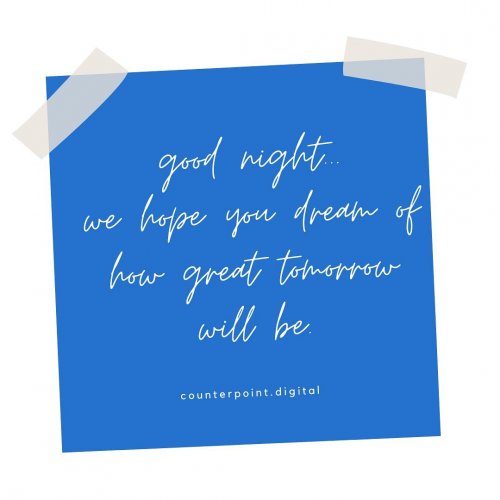 good night...
we hope you dream of
how great tomorrow
will be.
counterpoint.digital